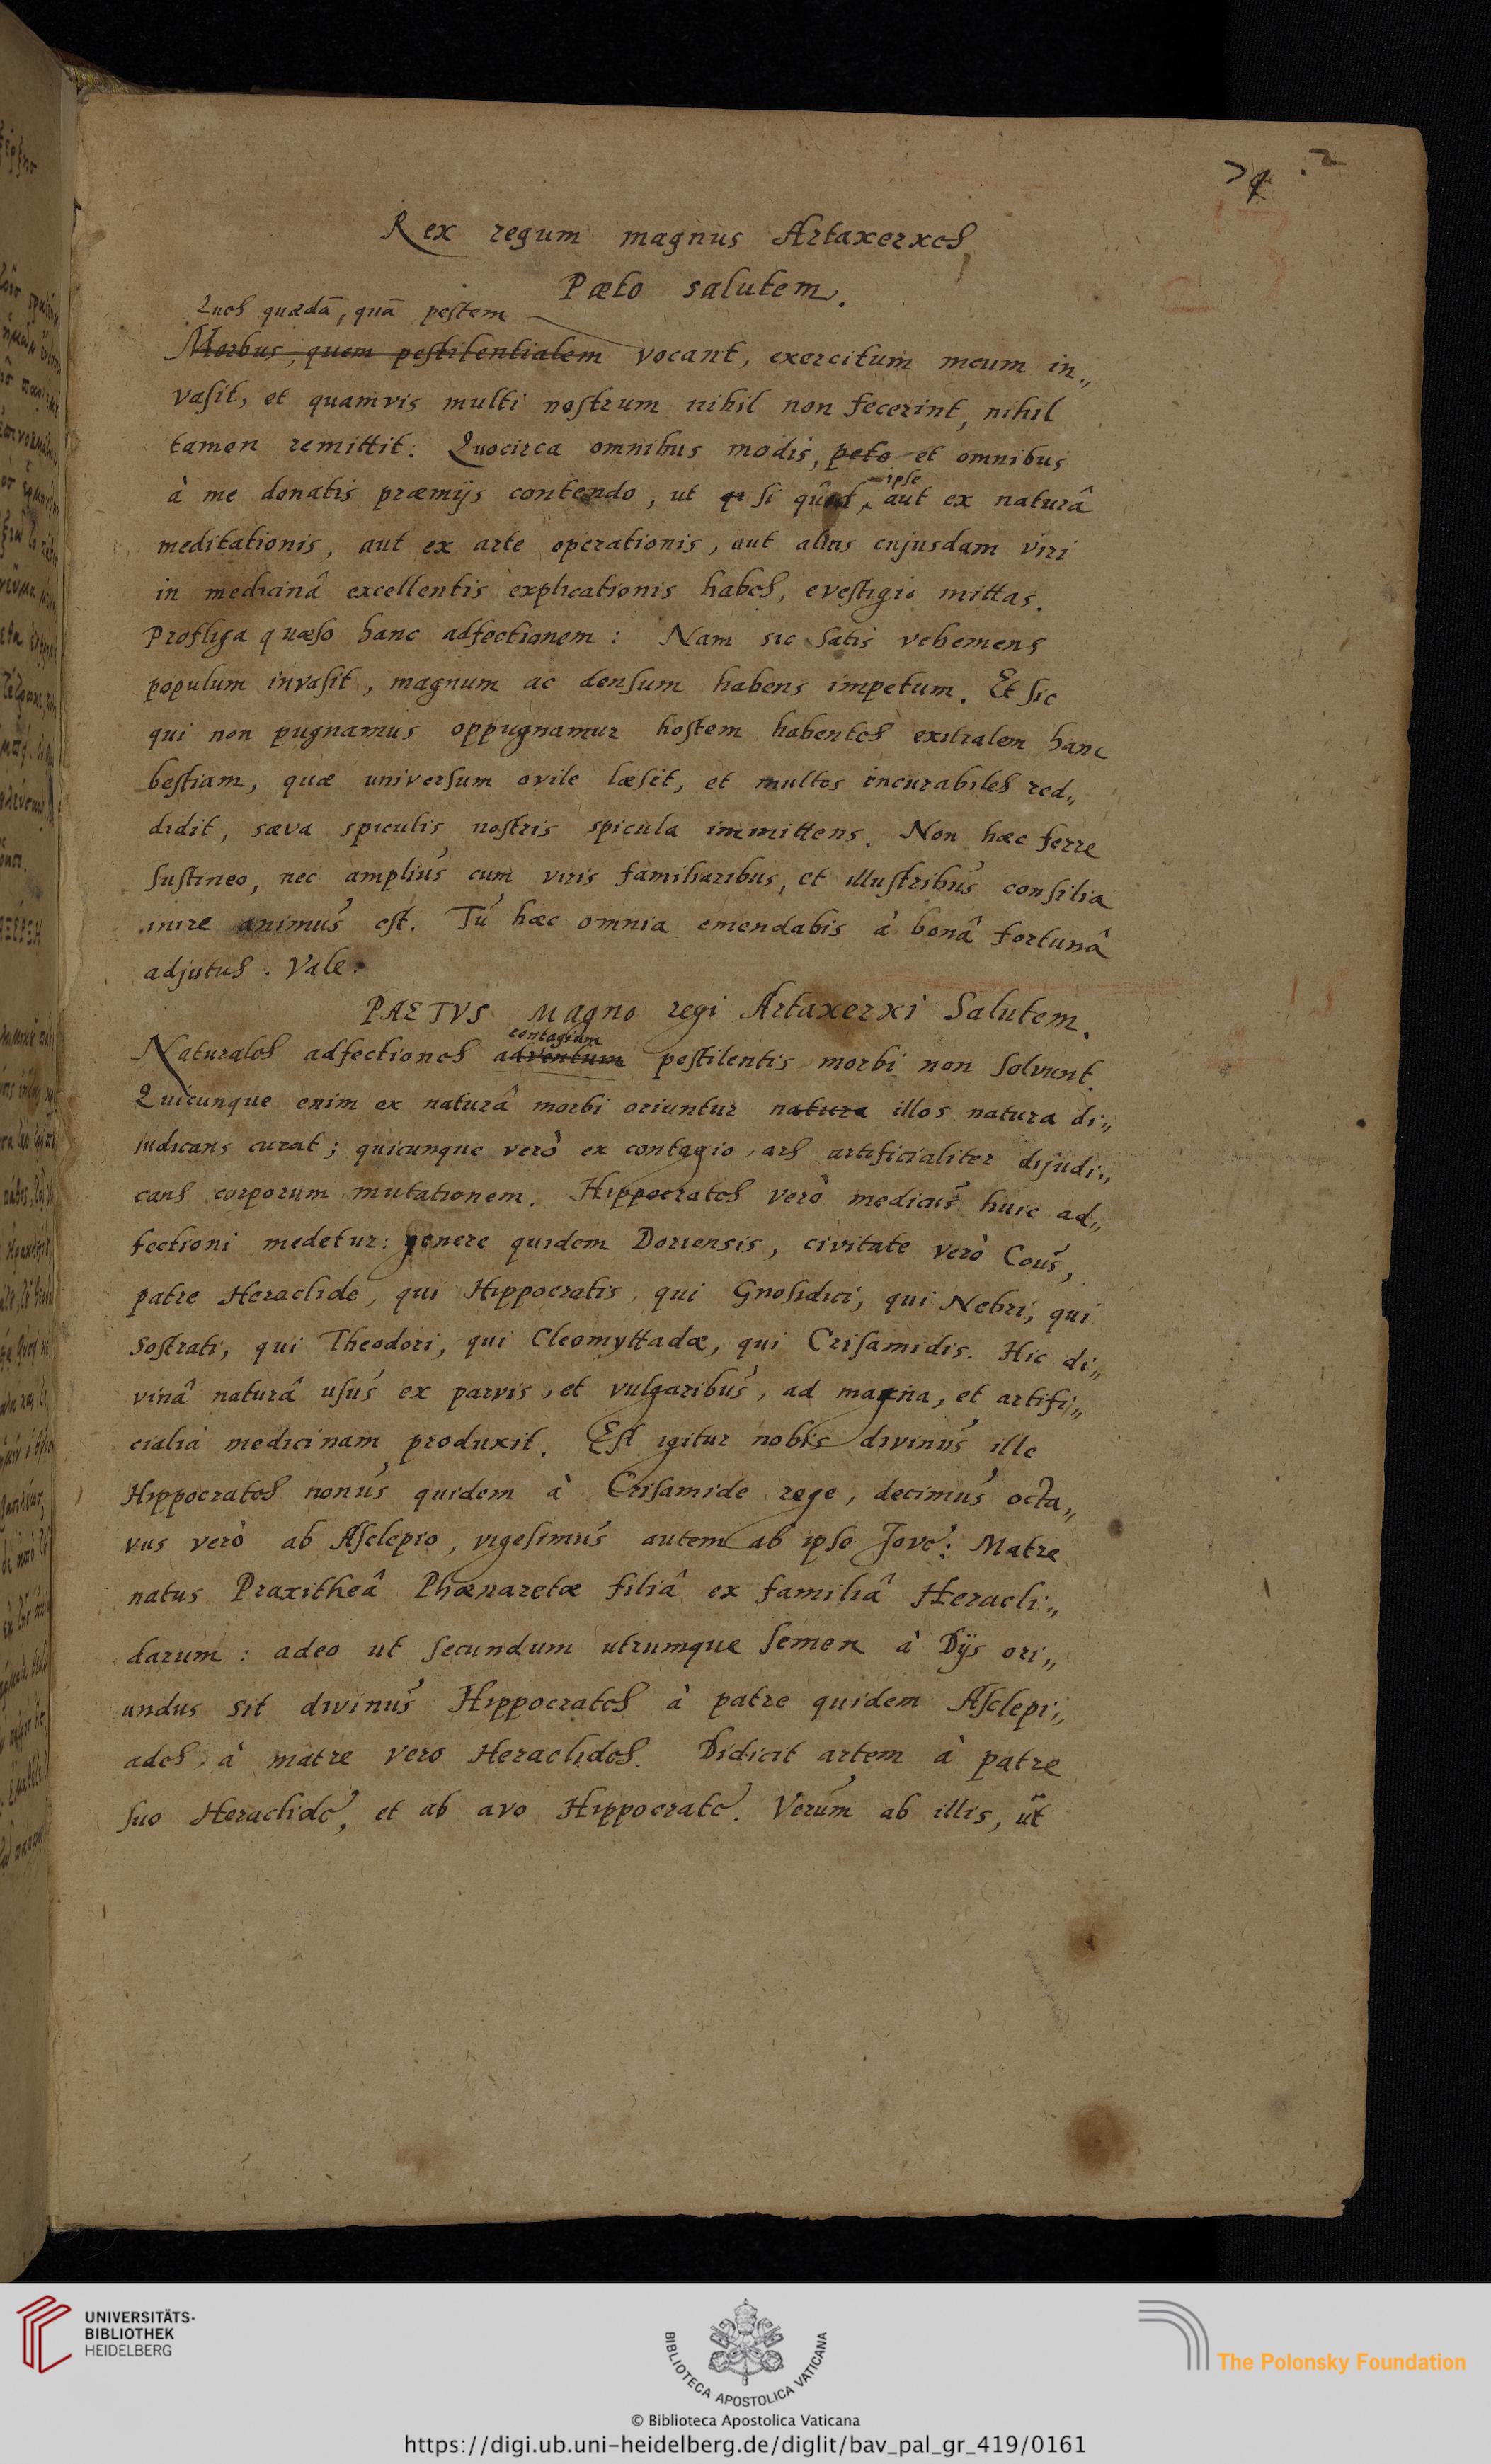 Rex regum magnus Artaxerxes
Pæto salutem.
Lues quædā, quā pestem
Morbus, quem pestilentialem vocant, exercitum meum in„
vasit, et quamvis multi nostrum nihil non fecerint, nihil
tamen remittit. Quocirca omnibus modis, peto et omnibus
ipse
à me donatis præmijs contendo, ut si quid, aut ex naturâ
meditationis, aut ex arte operationis, aut alius cujusdam viri
in medicinâ excellentis explicationis habes, evestigio mittas.
Profliga quæso hanc adfectionem: Nam sic satis vehemens
populum invasit, magnum ac densum habens impetum. Et sic
qui non pugnamus oppugnamur hostem habentes exitialem hanc
bestiam, quæ universum ovile læsit, et multos incurabiles red„
didit, sæva spiculis nostris spicula immittens. Non hæc ferre
sustineo, nec ampliùs cum viris familiaribus, et illustribus consilia
inire animus est. Tu hæc omnia emendabis à bonâ fortunâ
adjutus. Vale.
PAETVS Magno regi Artaxerxi Salutem.
contagium
Naturales adfectiones adventum pestilentis morbi non solvunt.
Quicunque enim ex naturâ morbi oriuntur natura illos natura di„
iudicans curat; quicunque verò ex contagio, ars artificialiter dijudi„
cans corporum mutationem. Hippocrates verò medicus huic ad„
fectioni medetur: genere quidem Doriensis, civitate verò Cous,
patre Heraclide, qui Hippocratis, qui Gnosidici, qui Nebri, qui
Sostrati, qui Theodori, qui Cleomyttadæ, qui Crisamidis. Hic di„
vinâ naturâ usus ex parvis, et vulgaribus, ad magna, et artifi„
cialia medicinam produxit. Est igitur nobis divinus ille
Hippocrates nonus quidem à Crisamide rege, decimus octa„
vus verò ab Asclepio, vigesimus autem ab ipso Jove: Matre
natus Praxitheâ Phænaretæ filiâ ex familiâ Heracli„
darum: adeo ut secundum utrumque semen à Dijs ori„
undus sit divinus Hippocrates à patre quidem Asclepi„
ades, à matre vero Heraclides. Didicit artem à patre
suo Heraclide, et ab avo Hippocrate. Verùm ab illis, ut
UNIVERSITÄTS-
BIBLIOTHEK
HEIDELBERG
BIBLIOTECA APOSTOLICA VATICANA
The Polonsky Foundation
© Biblioteca Apostolica Vaticana
https://digi.ub.uni-heidelberg.de/diglit/bav_pal_gr_419/0161